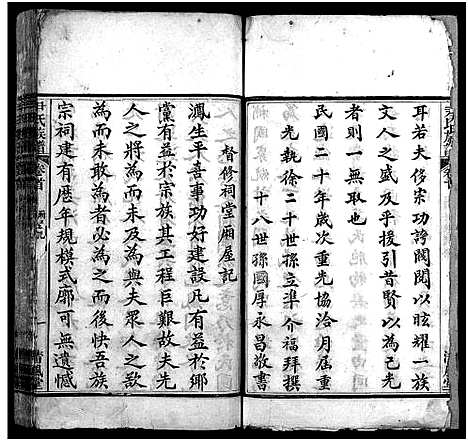 耳若夫侈宗功誇閥閱以眩耀一族
文人之盛及乎援引昔賢以為己式
者則一無取也
民國二十年歲次重光協洽月居重
光執徐二十世孫立準介福拜撰
十八世孫國厚永昌敬書
督修祠堂廂屋記
瀕生平喜事功好建設凡有益於鄉
黨有益於宗族其工程巨艱故夫先
人之所為而未及為與夫眾人之欲
為而未敢為者必為之而後快吾族
宗祠建有歷年規模式廓可無遺憾
尹氏族譜 卷首
清風堂